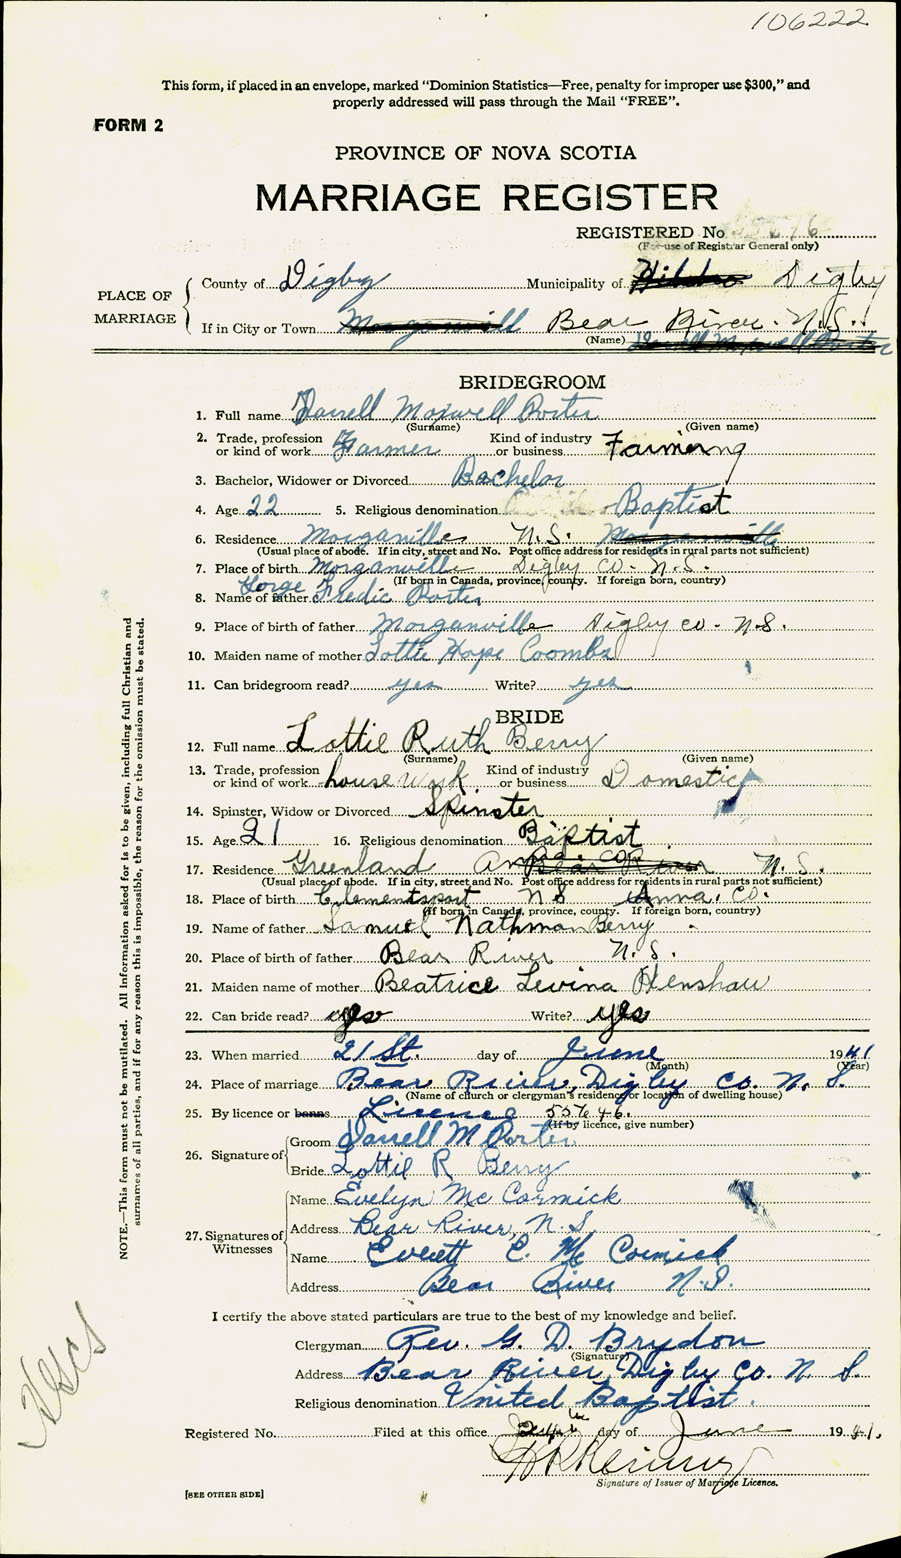 106222
This form, if placed in an envelope, marked "Dominion Statistics—Free, penalty for improper use $300," and
properly addressed will pass through the Mail "FREE".
FORM 2
PROVINCE OF NOVA SCOTIA
MARRIAGE REGISTER
REGISTERED No
(For use of Registrar General only)
PLACE OF MARRIAGE
County of Digby Municipality of Digby
If in City or Town Morganvill Bear River. N.S.
(Name) Darrell Maxwell Porter
BRIDEGROOM
1. Full name Darrell Maxwell Porter
(Surname) (Given name)
2. Trade, profession or kind of work Farmer Kind of industry or business Farmering
3. Bachelor, Widower or Divorced Bachelor
4. Age 22 5. Religious denomination Baptist
6. Residence Morganville N.S. Morganville
(Usual place of abode. If in city, street and No. Post office address for residents in rural parts not sufficient)
7. Place of birth Morganville Digby Co. N.S.
(If born in Canada, province, county. If foreign born, country)
8. Name of father Gorge Fredic Porter
9. Place of birth of father Morganville Digby co. N.S.
10. Maiden name of mother Lottie Hope Coombs
11. Can bridegroom read? yes Write? yes
BRIDE
12. Full name Lottie Ruth Berry
(Surname) (Given name)
13. Trade, profession or kind of work house work Kind of industry or business Domestic
14. Spinster, Widow or Divorced Spinster
15. Age 21 16. Religious denomination Baptist
17. Residence Greenland Anna. Co. Bear River N.S.
(Usual place of abode. If in city, street and No. Post office address for residents in rural parts not sufficient)
18. Place of birth Clementsport N S Anna. Co.
(If born in Canada, province, county. If foreign born, country)
19. Name of father Samuel Nathman Berry
20. Place of birth of father Bear River N.S.
21. Maiden name of mother Beatrice Levina Henshaw
22. Can bride read? yes Write? yes
23. When married 21 St. day of June 1941
(Month) (Year)
24. Place of marriage Bear River, Digby Co. N. S.
(Name of church or clergyman's residence or location of dwelling house)
25. By licence or banns Licence 55646.
(If by licence, give number)
26. Signature of
Groom Darrell M Porter
Bride Lottie R Berry
27. Signatures of Witnesses
Name Evelyn Mc Cormick
Address Bear River, N.S.
Name Everett E. Mc Cormick
Address Bear River N.S.
I certify the above stated particulars are true to the best of my knowledge and belief.
Clergyman Rev. G. D. Brydon
(Signature)
Address Bear River, Digby Co. N. S.
Religious denomination United Baptist.
Registered No. Filed at this office day of June 1941.
Signature of Issuer of Marriage Licence.
[SEE OTHER SIDE]
NOTE.—This form must not be mutilated. All information asked for is to be given, including full Christian and
surnames of all parties, and if for any reason this is impossible, the reason for the omission must be stated.